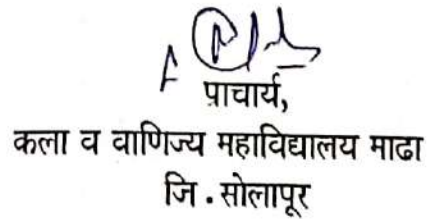 प्राचार्य,
कला व वाणिज्य महाविद्यालय माढा
जि . सोलापूर